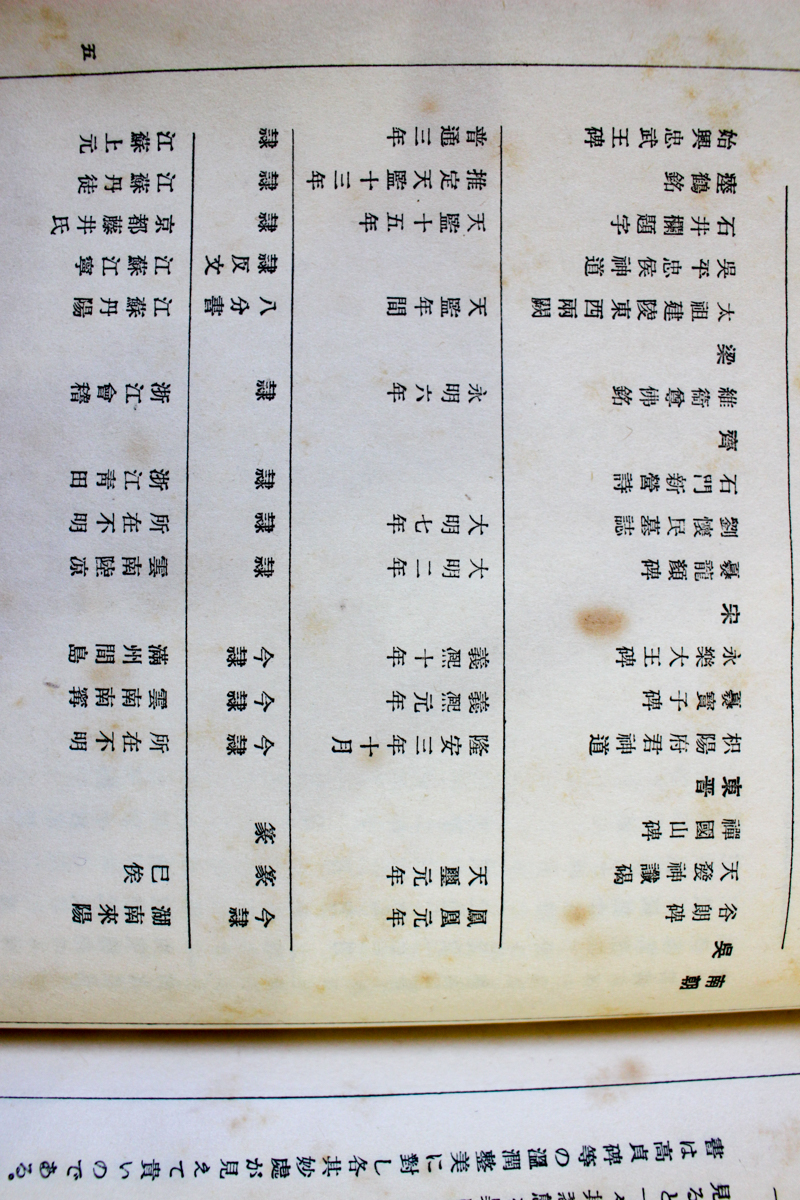 書は高貞碑等の溫潤整美に對し各其妙處が見えて貴いのである。
南朝
吳
谷朗碑 鳳凰元年 今隸 湖南來陽
天發神讖碣 天璽元年 篆 已佚
禪國山碑 篆
東晉
枳陽府君神道 隆安三年十月 今隸 所在不明
爨寶子碑 義熙元年 今隸 雲南南寗
永樂大王碑 義熙十年 今隸 滿州間島
宋
爨龍顏碑 大明二年 隸 雲南陸凉
劉懷民墓誌 大明七年 隸 所在不明
石門新營詩 隸 浙江青田
齊
維衞尊佛銘 永明六年 隸 浙江會稽
梁
太祖建陵東西兩闕 天鑑年間 八分書 江蘇丹陽
吳平忠侯神道 隸反文 江蘇江寧
石井欄題字 天鑑十五年 隸 京都藤井氏
瘞鶴銘 推定天鑑十三年 隸 江蘇丹徒
始興忠武王碑 普通三年 隸 江蘇上元
五